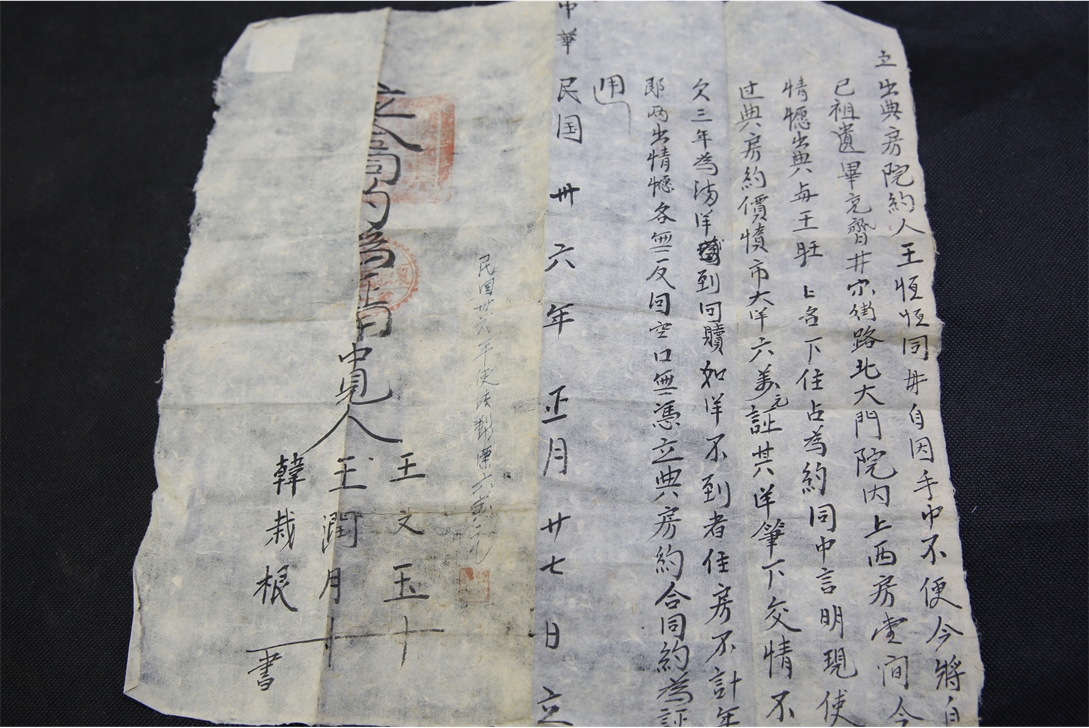 立出典房院約人王恆恆同母自因手巾不便今將自
己祖遺畢元齊井街路北大門院内上西房壹間今
情愿出典與王旺名下住占為約同中言明現使
过典房約價憤市大洋六萬元証其洋筆下交情不
欠三年為滿洋到回贖如洋不到者住房不計年
郎两出情愿各無反回空口無憑立典房約合同約為証
用
中華民国卅六年正月廿七日立
民国卅六年使法六萬元
立合同約為証用
中見人
王文玉十
王潤月十
韓栽根書